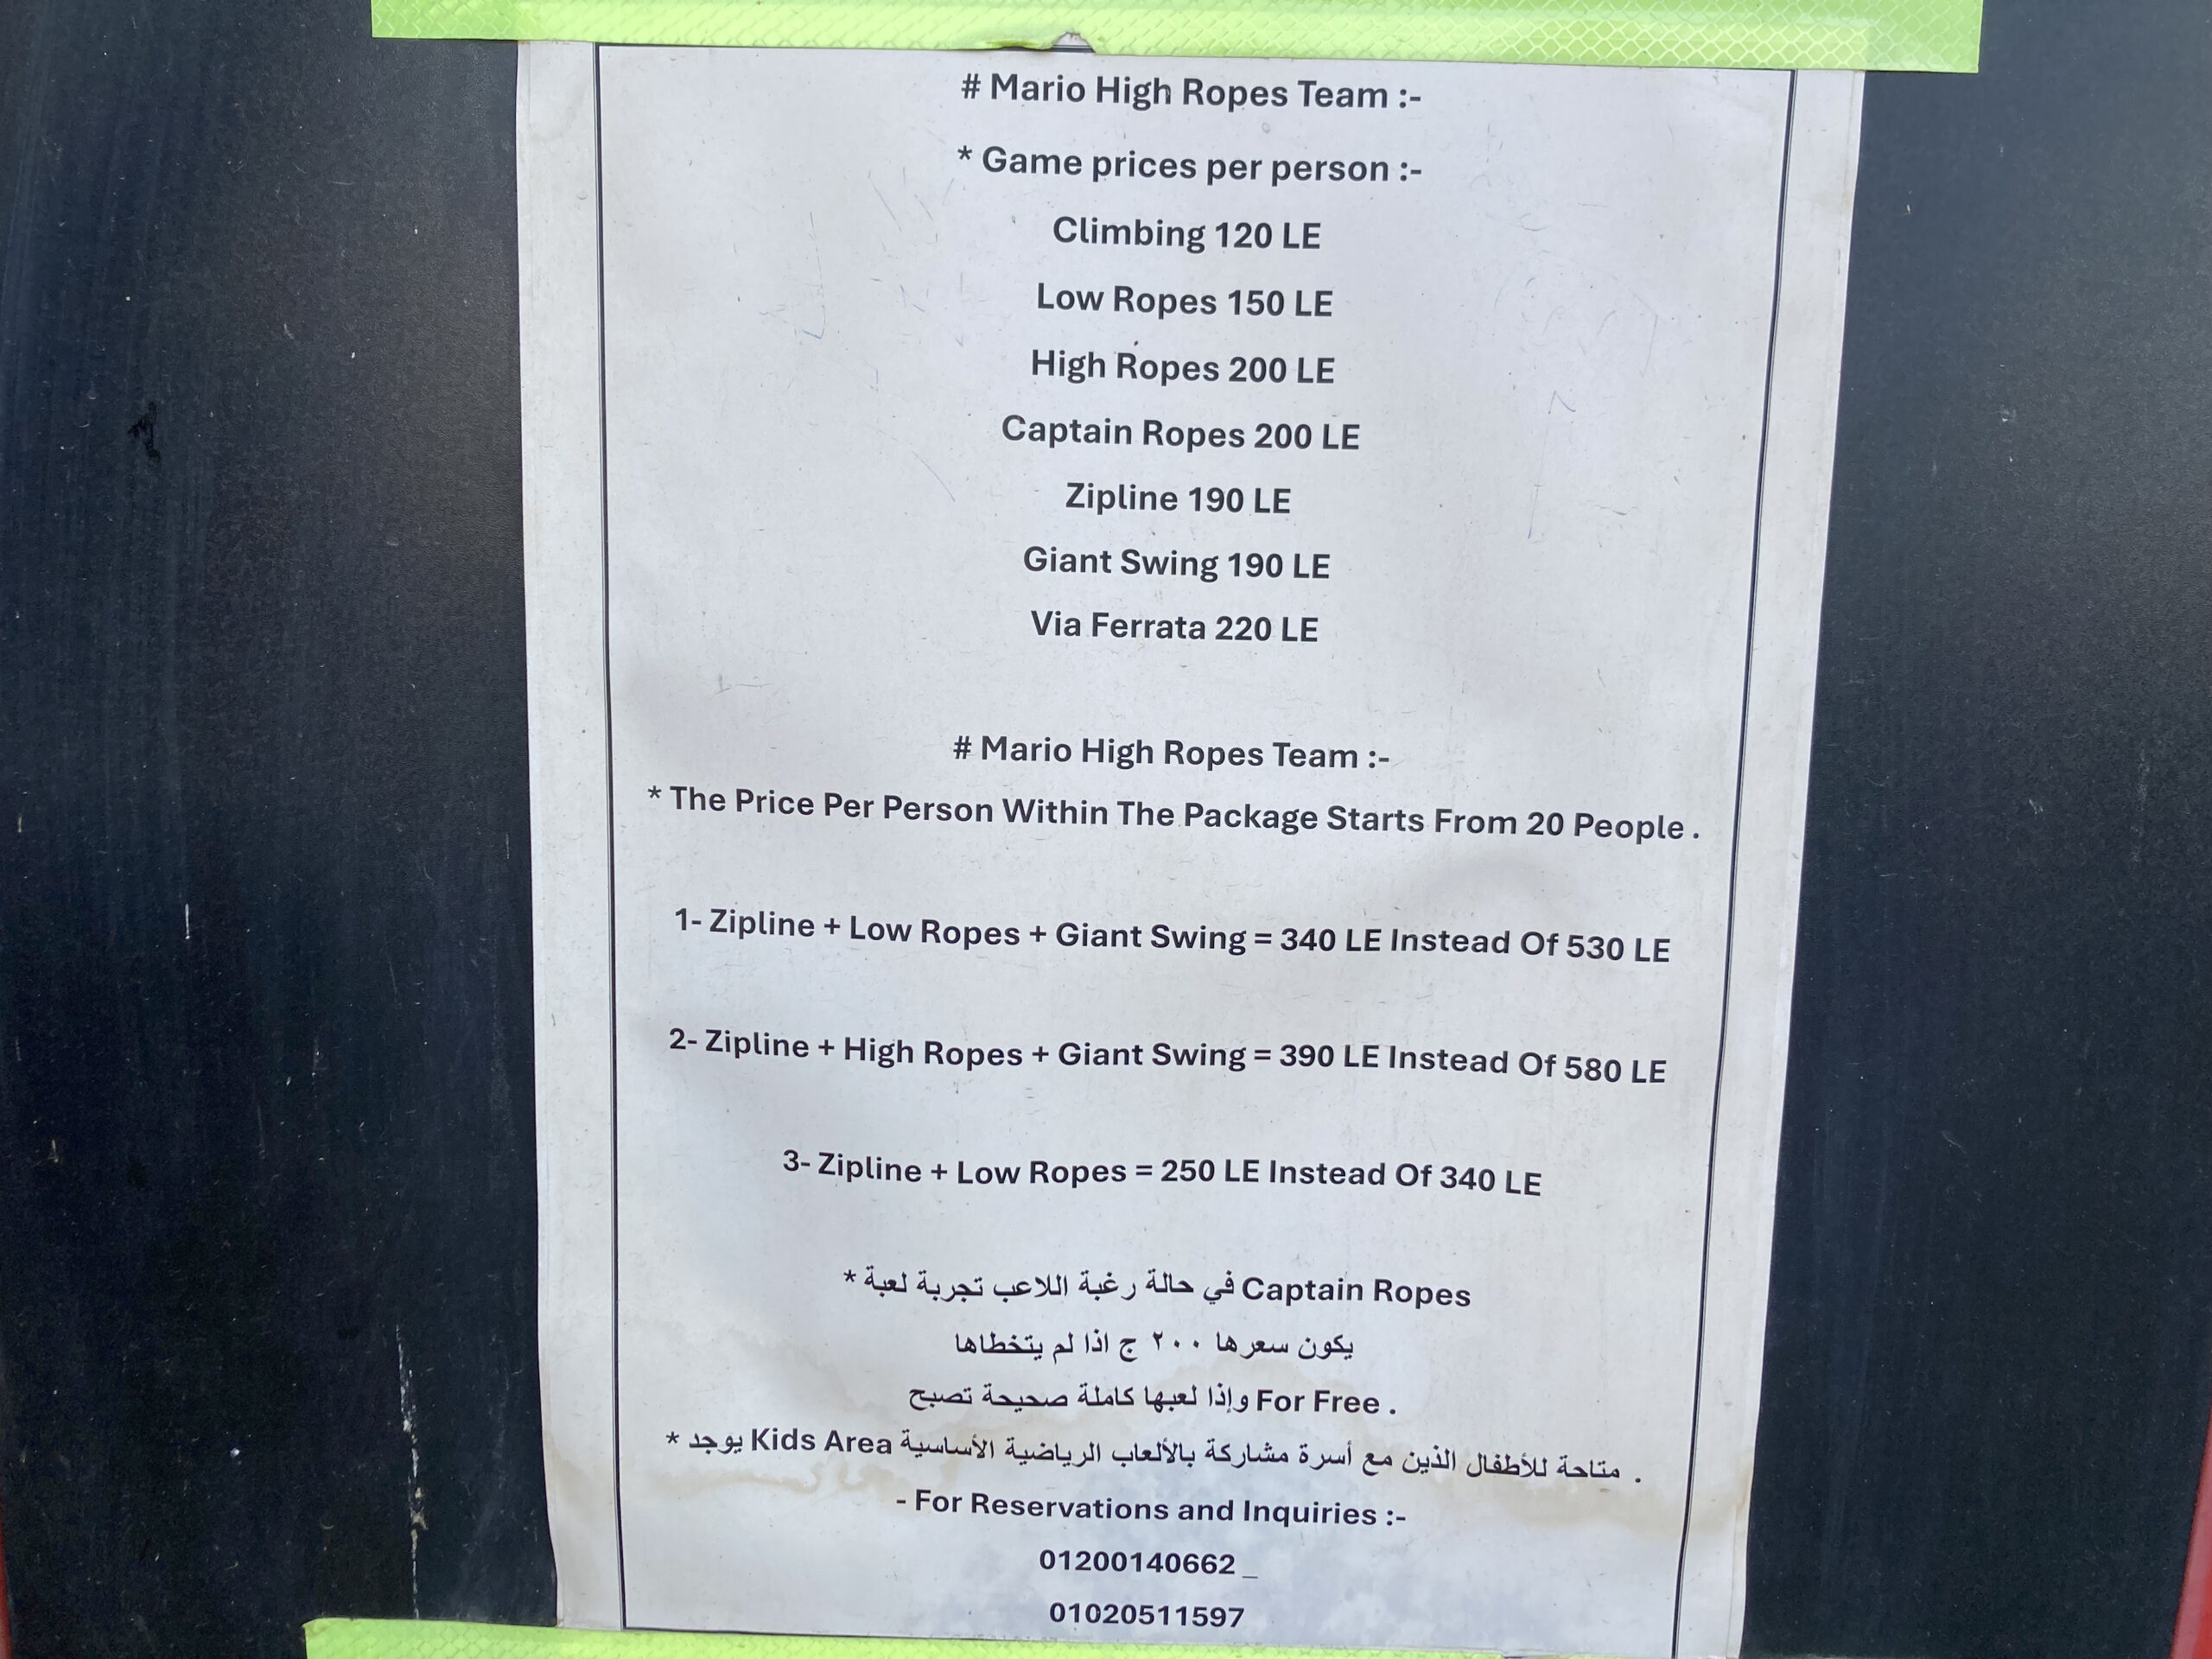 # Mario High Ropes Team :-
* Game prices per person :-
Climbing 120 LE
Low Ropes 150 LE
High Ropes 200 LE
Captain Ropes 200 LE
Zipline 190 LE
Giant Swing 190 LE
Via Ferrata 220 LE
# Mario High Ropes Team :-
* The Price Per Person Within The Package Starts From 20 People .
1- Zipline + Low Ropes + Giant Swing = 340 LE Instead Of 530 LE
2- Zipline + High Ropes + Giant Swing = 390 LE Instead Of 580 LE
3- Zipline + Low Ropes = 250 LE Instead Of 340 LE
* في حالة رغبة اللاعب تجربة لعبة Captain Ropes
يكون سعرها ٢٠٠ ج اذا لم يتخطاها
وإذا لعبها كاملة صحيحة تصبح For Free .
* يوجد Kids Area متاحة للأطفال الذين مع أسرة مشاركة بالألعاب الرياضية الأساسية .
- For Reservations and Inquiries :-
01200140662 _
01020511597